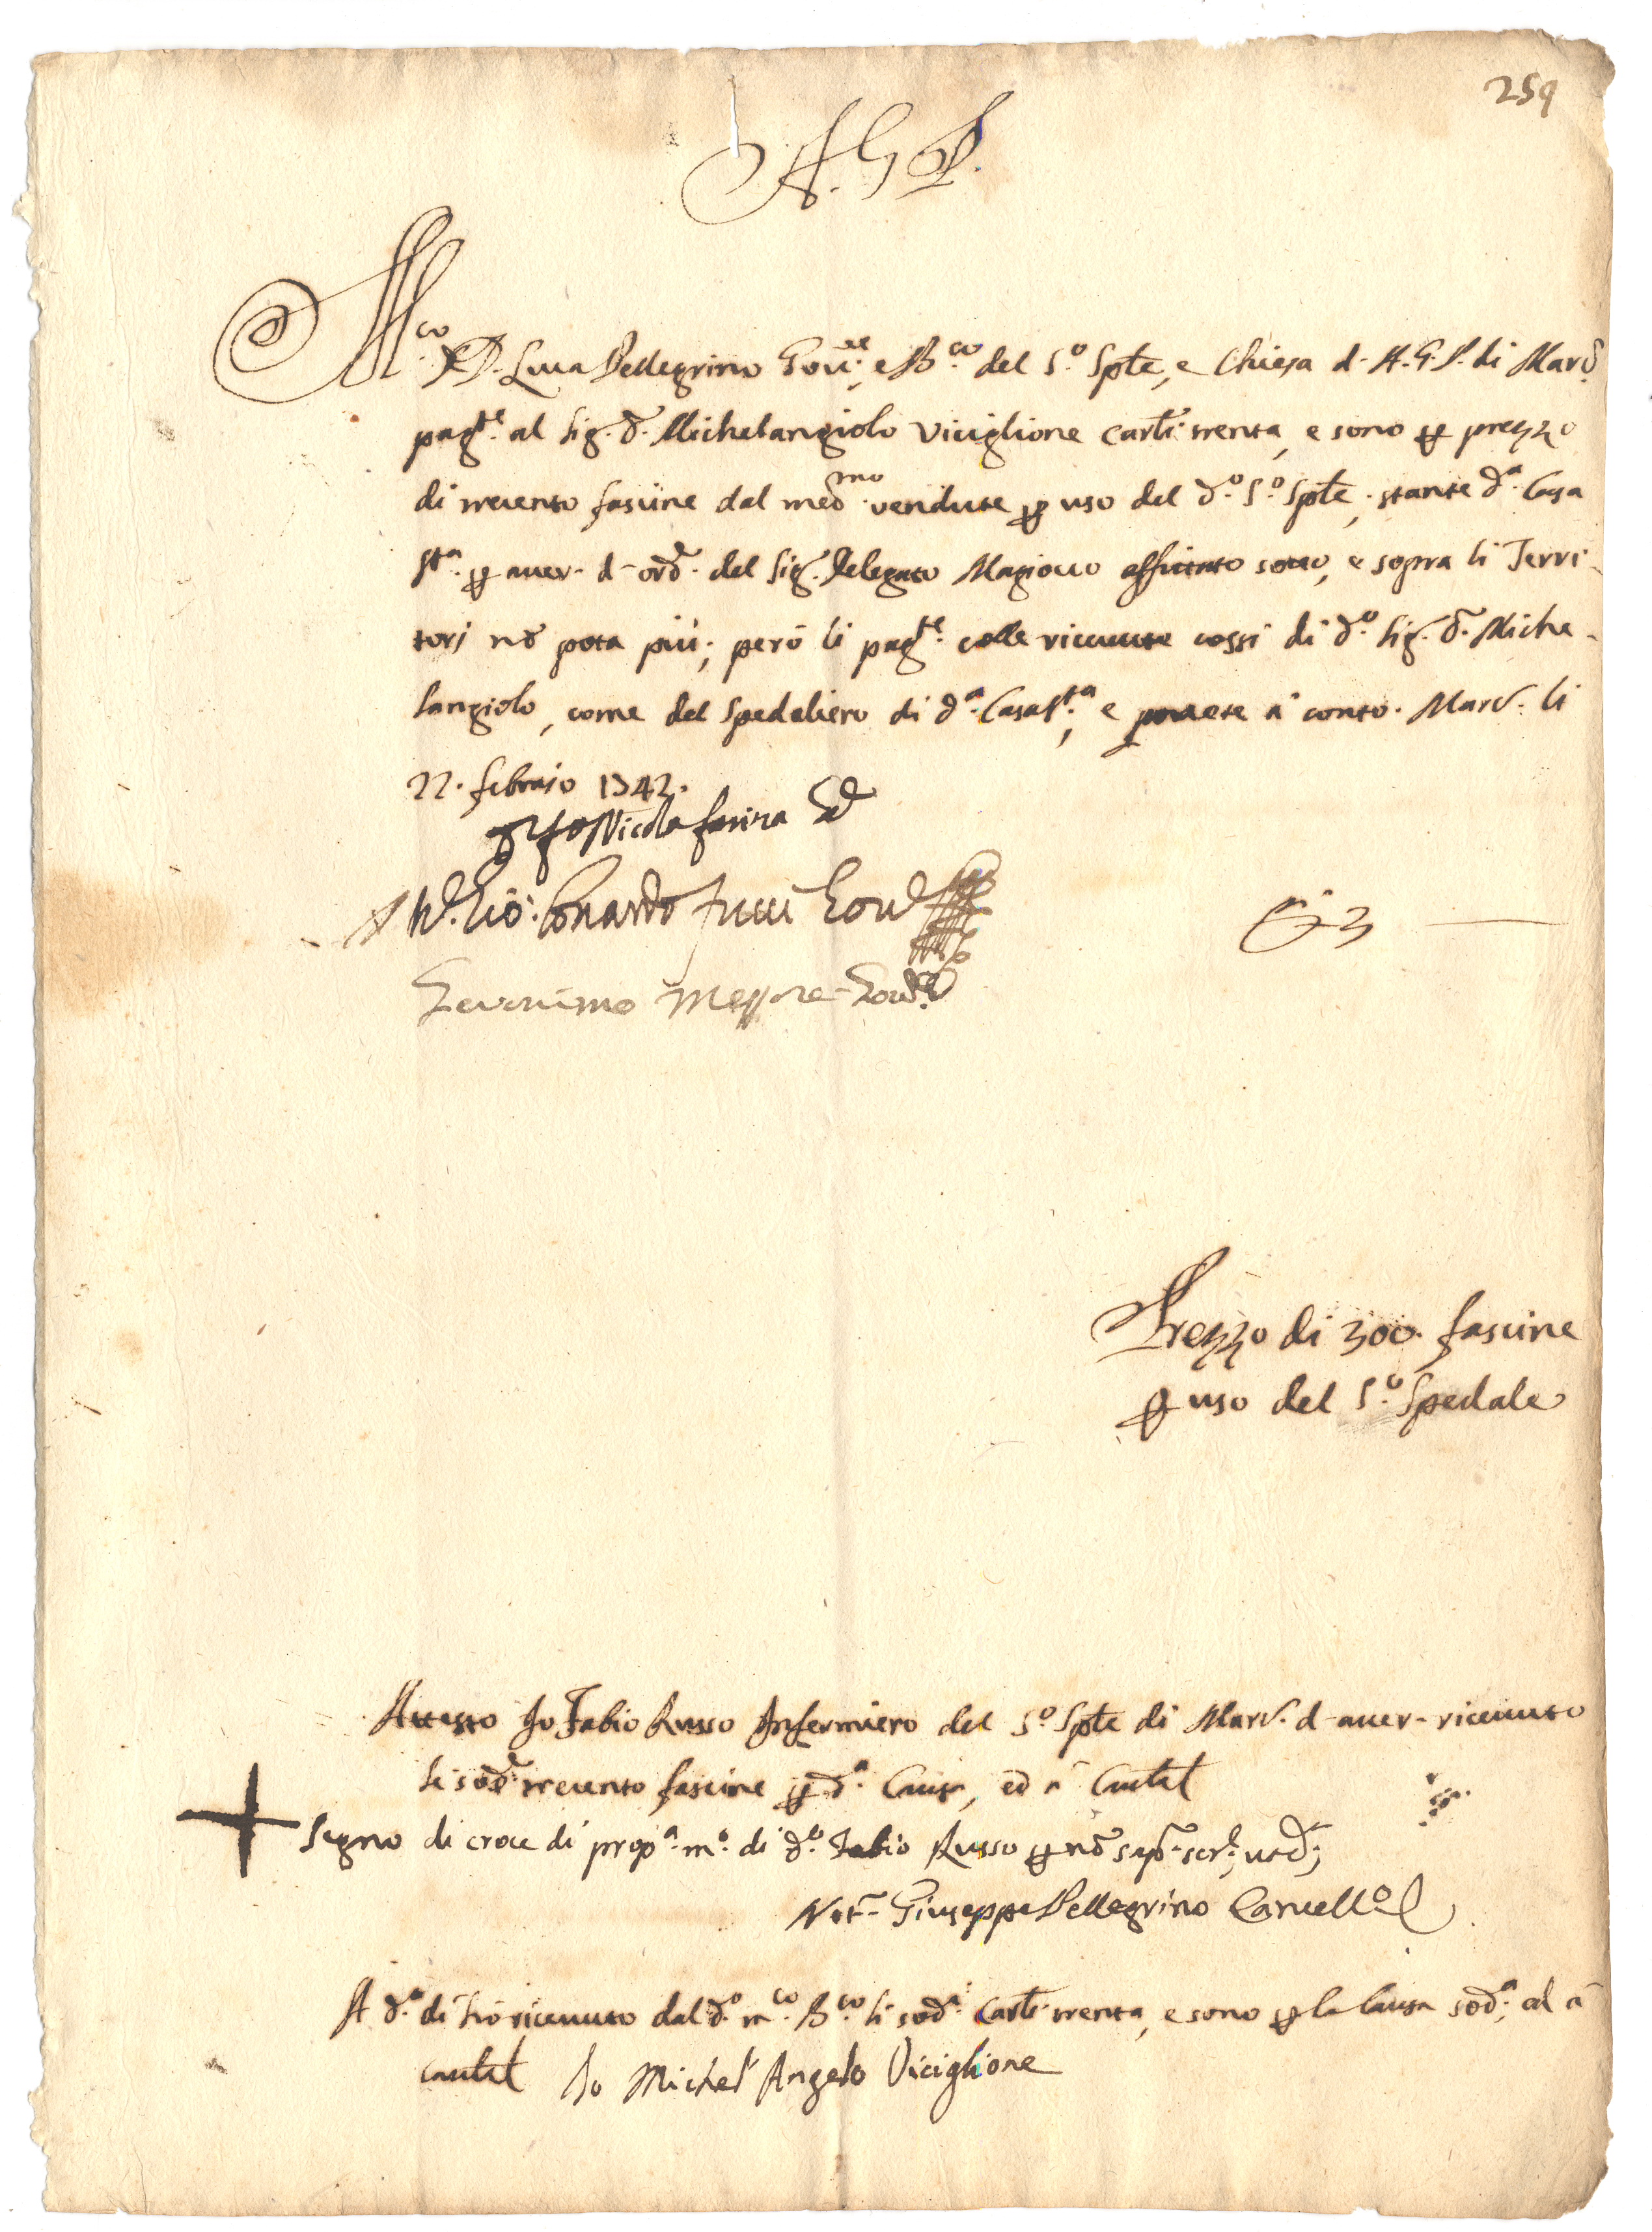 259
A. G. P.
M.co D. Luca Pellegrino Gov.re, e B.co del S.o Sple, e Chiesa d. A. G. P. di Mard.
pag.te al Sig. D. Michelangiolo Viciglione Carli trenta, e sono p prezzo
di trecento fascine dal med.mo vendute p uso del d.o S.o Sple, stante d.a Casa
S.ta p aver d ord. del Sig. Delegato Magiocco affittato sotto, e sopra li Terri-
torj nō pota più; però li pag.te colle ricevute cossi di d.o Sig. D. Miche-
langiolo, come del Spedaliero di d.a Casa S.ta, e ponete à conto. Mard. li
22. febraio 1742.
Nicola farina
Gio: Lonardo Tucci Gov.
Geronimo Messore Gov.
3
Prezzo di 300. fascine
p uso del S.o Spedale
Attesto Io Fabio Russo Infermiero del S.o Sple di Mard. d aver ricevuto
le sod.e trecento fascine p d.a Causa, ed à Cautel
Segno di croce di prop.a m.o di d.o Fabio Russo p nō sap. scr.
Not. Giuseppe Pellegrino Canvell.o
A d.o dì hò ricevuto dal d.o m.co B.co li sod.i Carli trenta, e sono p la Causa sod.a, ed à
Cautel Io Michel Angelo Viciglione